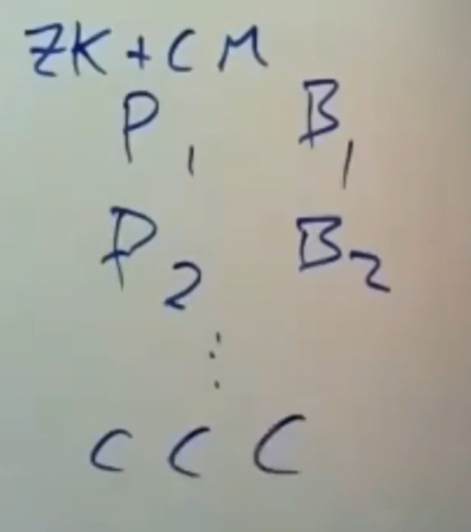 ZK + CM
P₁ B₁
P₂ B₂
⋮
C C C